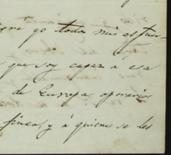 que yo toda mi esfuer-
que soy capaz a esa
de Europa oponién
fincas, y á quienes se les